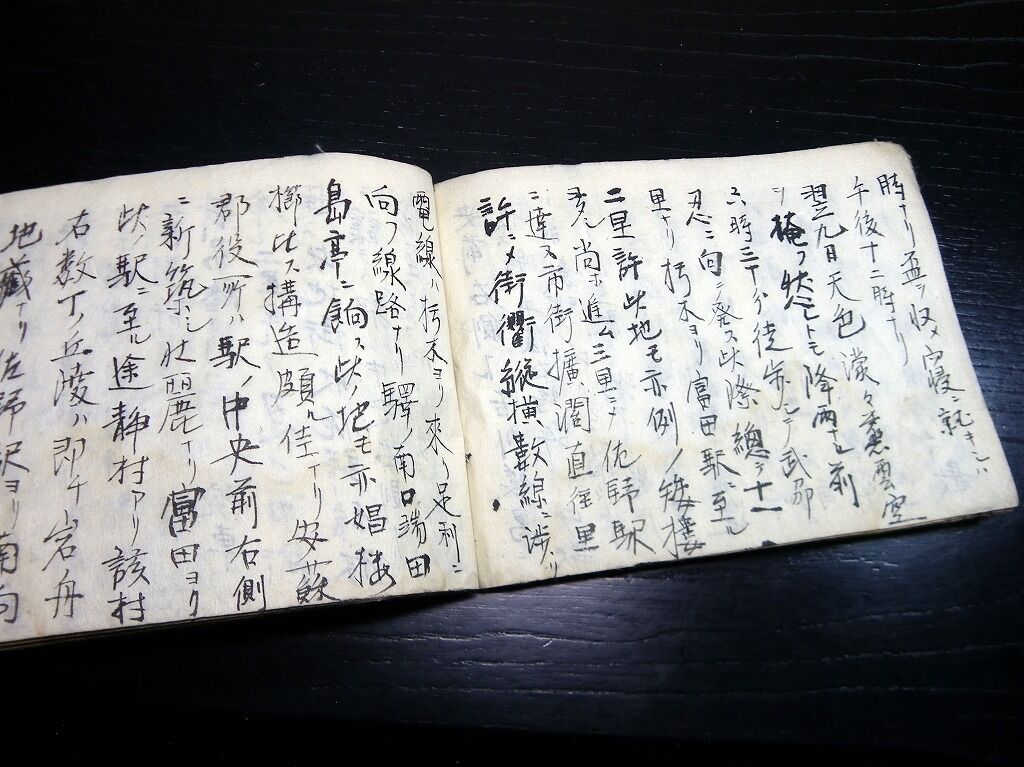 時ナリ盃ヲ収メ寝ニ就キシハ
午後十二時ナリ
翌九日天色濛々叢雲空
ヲ掩フ然レトモ降雨セス前
六時三十分徒歩シテ武
忍ニ向ニ発ス此際總テ十一
里ナリ栃木ヨリ富田駅ニ至ル
二里許此地モ亦例ノ娼樓
多シ尚ホ進ム三里ニメ佐野駅
ニ達ス市街擴濶直径里
許ニメ街衢縦横数線ニ渉リ
電線ハ栃木ヨリ來リ足利ニ
向フノ線路ナリ驛ノ南口端田
島亭ニ餉ス此ノ地モ亦娼楼
櫛比ス構造頗ル佳ナリ安蘇
郡役所ハ駅ノ中央前右側
ニ新築シ壮麗ナリ富田ヨリ
此ノ駅ニ至ル途静村アリ該村
右数丁ノ丘陵ハ即チ岩舟
地藏ナリ佐野駅ヨリ南向